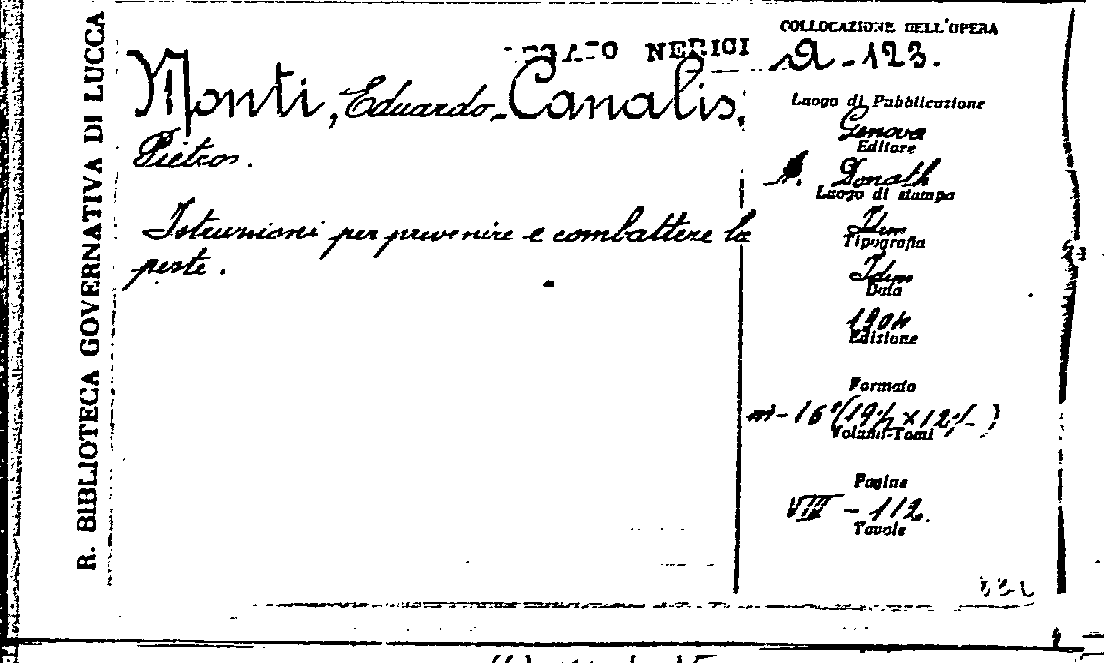 R. BIBLIOTECA GOVERNATIVA DI LUCCA
NERICI
Monti, Eduardo - Canalis,
Pietro.
Istruzioni per prevenire e combattere la
peste.
COLLOCAZIONE DELL'OPERA
A - 123.
Luogo di Pubblicazione
Genova
Editore
A. Donath
Luogo di stampa
Idem
Tipografia
Idem
Data
1904
Edizione
Formato
in-16°(19½ × 12½)
Volumi-Tomi
Pagine
VIII - 112.
Tavole